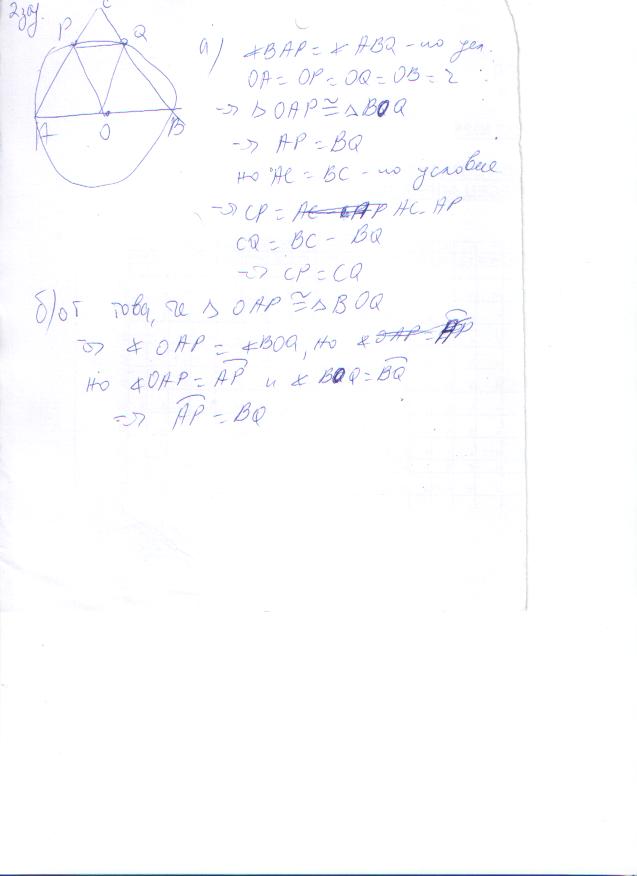 2 зад.
C
P
Q
A
O
B
а) ∢BAP = ∢ABQ - по усл.
OA = OP = OQ = OB = r
→ △OAP ≅ △BOQ
→ AP = BQ
но AC = BC - по условие
→ CP = AC - AP AC - AP
CQ = BC - BQ
→ CP = CQ
б) от това, че △OAP ≅ △BOQ
→ ∢OAP = ∢BOQ, но ∢OAP = AP
но ∢OAP = AP и ∢BOQ = BQ
→ AP = BQ